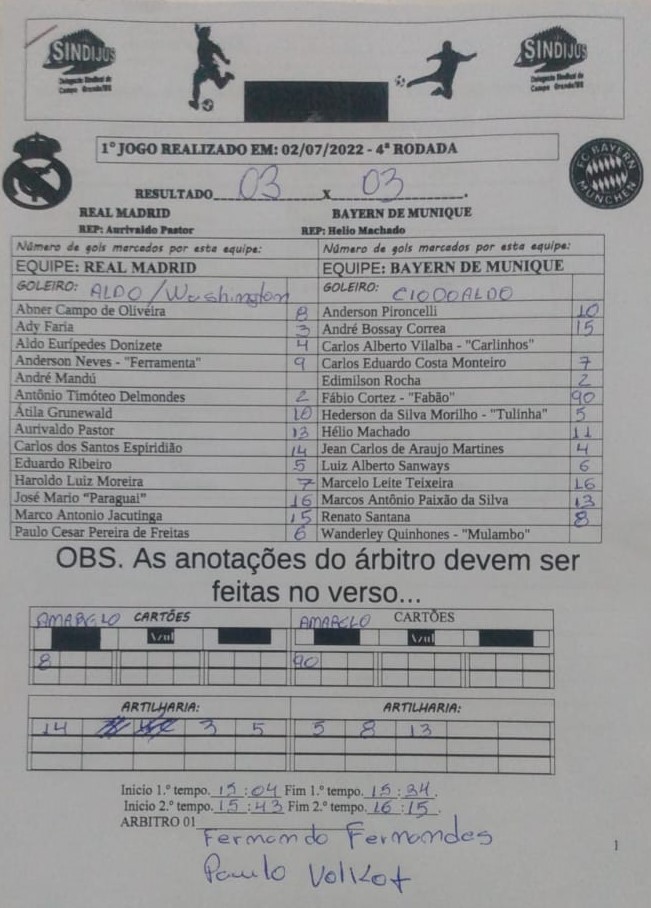 SINDIJUS
Delegacia Sindical de
Campo Grande/MS
SINDIJUS
Delegacia Sindical de
Campo Grande/MS
1º JOGO REALIZADO EM: 02/07/2022 - 4ª RODADA
FC BAYERN MÜNCHEN
RESULTADO 03 X 03.
REAL MADRID BAYERN DE MUNIQUE
REP: Aurivaldo Pastor REP: Helio Machado
Número de gols marcados por esta equipe: Número de gols marcados por esta equipe:
EQUIPE: REAL MADRID EQUIPE: BAYERN DE MUNIQUE
GOLEIRO: ALDO / Washington GOLEIRO: CIODOALDO
Abner Campo de Oliveira 8 Anderson Pironcelli 10
Ady Faria 3 André Bossay Correa 15
Aldo Eurípedes Donizete 4 Carlos Alberto Vilalba - "Carlinhos"
Anderson Neves - "Ferramenta" 9 Carlos Eduardo Costa Monteiro 7
André Mandú Edimilson Rocha 2
Antônio Timóteo Delmondes 2 Fábio Cortez - "Fabão" 90
Átila Grunewald 10 Hederson da Silva Morilho - "Tulinha" 5
Aurivaldo Pastor 13 Hélio Machado 11
Carlos dos Santos Espiridião 14 Jean Carlos de Araujo Martines 4
Eduardo Ribeiro 5 Luiz Alberto Sanways 6
Haroldo Luiz Moreira 7 Marcelo Leite Teixeira 16
José Mario "Paraguai" 16 Marcos Antônio Paixão da Silva 13
Marco Antonio Jacutinga 15 Renato Santana 8
Paulo Cesar Pereira de Freitas 6 Wanderley Quinhones - "Mulambo"
OBS. As anotações do árbitro devem ser
feitas no verso...
AMARELO CARTÕES AMARELO CARTÕES
Azul Azul
8 90
ARTILHARIA: ARTILHARIA:
14 3 5 5 8 13
Inicio 1.º tempo. 15:04 Fim 1.º tempo. 15:34.
Inicio 2.º tempo. 15:43 Fim 2.º tempo. 16:15.
ARBITRO 01 Fernando Fernandes
Paulo Volkot
1